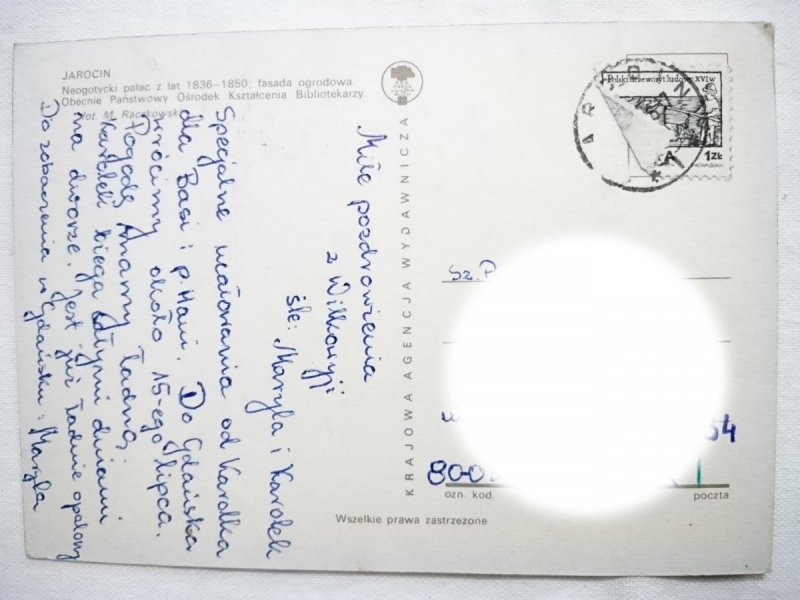 JAROCIN
Neogotycki pałac z lat 1836–1850; fasada ogrodowa.
Obecnie Państwowy Ośrodek Kształcenia Bibliotekarzy.
Fot. M. Raczkowski
Miłe pozdrowienia
z Wilkowyji
śle: Maryla i Karolek
Specjalne ucałowania od Karolka
dla Basi i p. Hani. Do Gdańska
wrócimy około 15-ego lipca.
Pogodę mamy ładną.
Karolek biega całymi dniami
na dworze. Jest już ładnie opalony
Do zobaczenia w Gdańsku: Maryla
KRAJOWA AGENCJA WYDAWNICZA
Polski drzeworyt ludowy XVI w
1 ZŁ
Sz. P
54
800
ozn. kod
poczta
Wszelkie prawa zastrzeżone